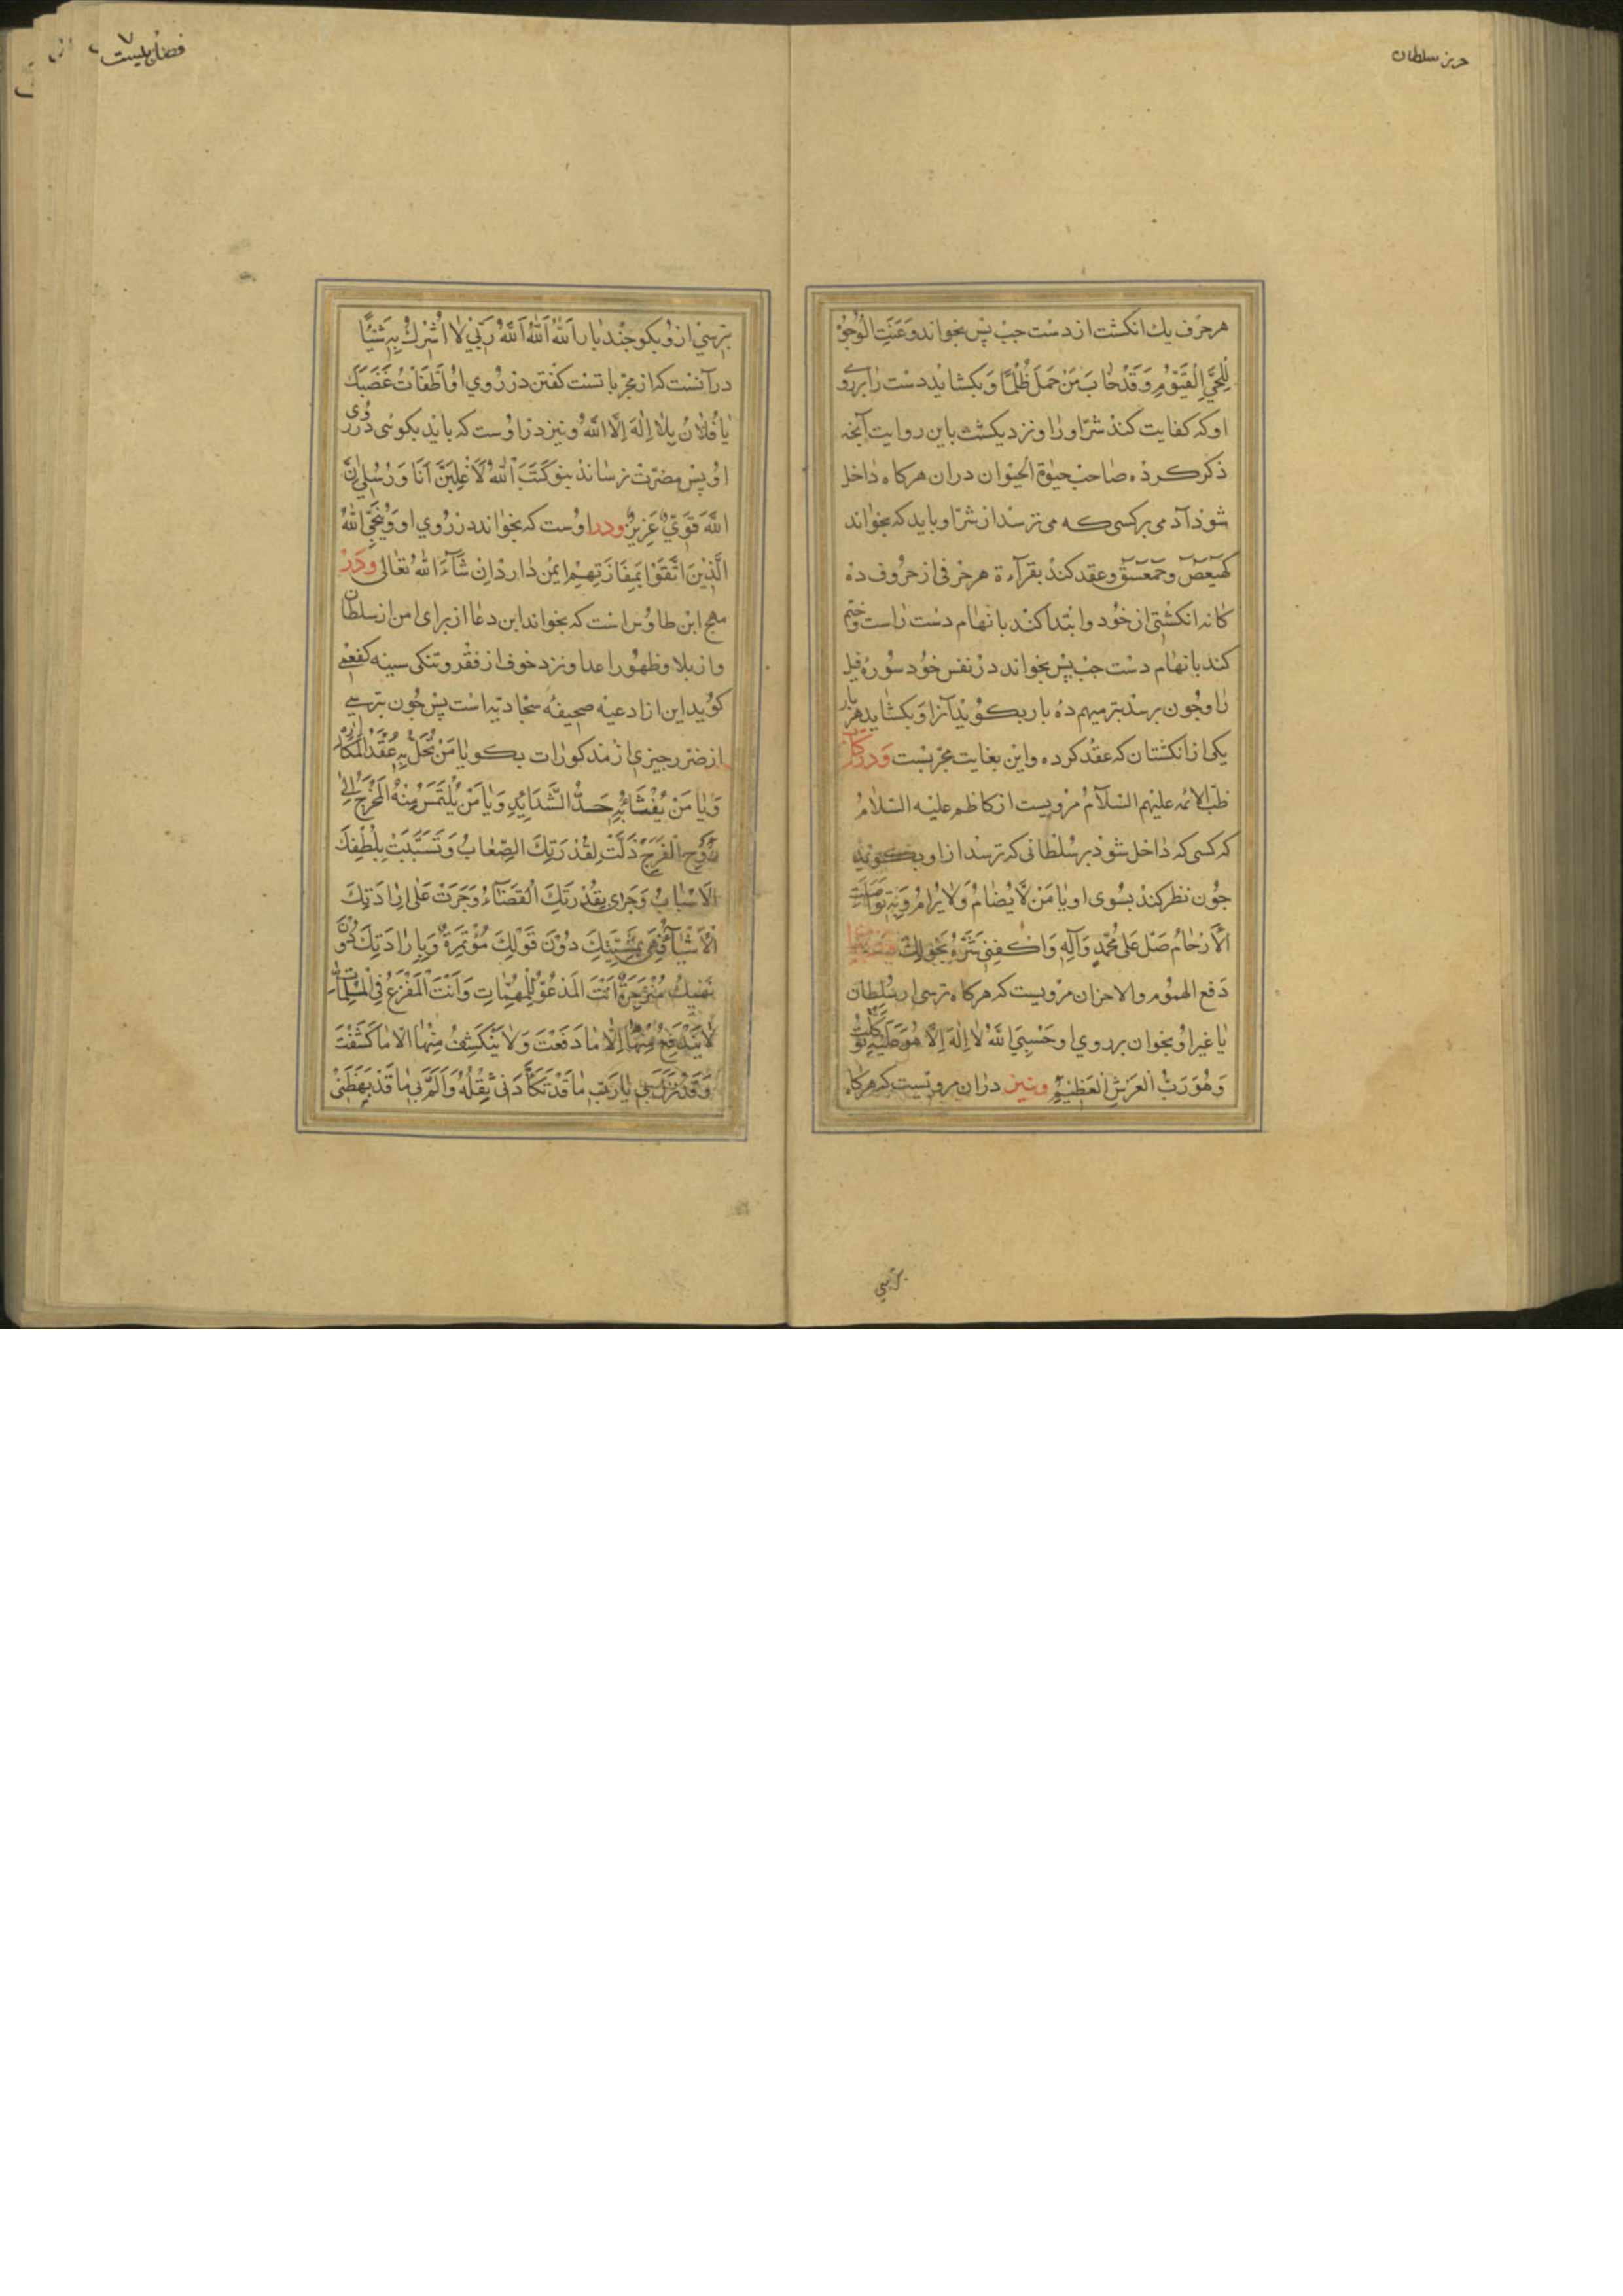 حرز سلطان
هر حرف يك انكشت از دست جپ پس بخواند وعنت الوجوه
للحي القيوم وقد خاب من حمل ظلما و بكشايد دست را بر روي
او كه كفايت كند شر او را و نزديكست باين روايت آنچه
ذكر كرده صاحب حيوة الحيوان در ان هر كاه داخل
شود آدمى بر كسى كه مى ترسد از شر او بايد كه بخواند
كهيعص و حمعسق و عقد كند بقرآءة هر حرفى از حروف ده
كانه انكشتى از خود و ابتدا كند بابهام دست راست و ختم
كند بابهام دست جپ پس بخواند در نفس خود سوره فيل
را و جون برسد بترميهم ده بار بكويد آنرا و بكشايد هر بار
يكى از انكشتان كه عقد كرده و اين بغايت مجربست ودر كتاب
طب الائمه عليهم السلام مرويست از كاظم عليه السلام
كه كسى كه داخل شود بر سلطانى كه ترسد از او بكويد
جون نظر كند بسوى او يا من لا يضام ولا يرام وبه تواصلت
الارحام صل على محمد وآله واكفنى شره بحولك
دفع الهموم والاحزان مرويست كه هر كاه ترسى از سلطان
يا غير او بخوان بر روي او حسبي الله لا اله الا هو عليه توكلت
وهو رب العرش العظيم ونيز در ان مرويست كه هر كاه
ترسي
بترسي از او بكو جند بار الله الله الله ربي لا اشرك به شيئا
در آنست كه از مجرباتست كفتن در روي او اطفأت غضبك
يا فلان بلا اله الا الله ونيز در اوست كه بايد بكوئى در روى
او پس مضرت نرساند بتو كتب الله لاغلبن انا ورسلي ان
الله قوي عزيز ودر اوست كه بخواند در روي او وينجي الله
الذين اتقوا بمفازتهم ايمن دارد ان شآء الله تعالى ودر
مهج ابن طاوس است كه بخواند اين دعا از براى امن از سلطان
و از بلا و ظهور اعدا و نزد خوف از فقر و تنكى سينه كفعمى
كويد اين از ادعيه صحيفه سجاديه است پس جون بترسي
از ضرر جيزي از مذكورات بكو يا من تحل به عقد المكاره
ويا من يفثأ به حد الشدايد ويا من يلتمس منه المخرج الى
روح الفرج ذلت لقدرتك الصعاب وتسببت بلطفك
الاسباب وجرى بقدرتك القضآء وجرت على ارادتك
الاشيآء فهى بمشيتك دون قولك مؤتمرة وبارادتك دون
نهيك منزجرة انت المدعو للمهمات وانت المفزع فى الملمات
لا يندفع منها الا ما دفعت ولا ينكشف منها الا ما كشفت
وقد نزل بي يا رب ما قد تكأدنى ثقله والم بى ما قد بهظنى